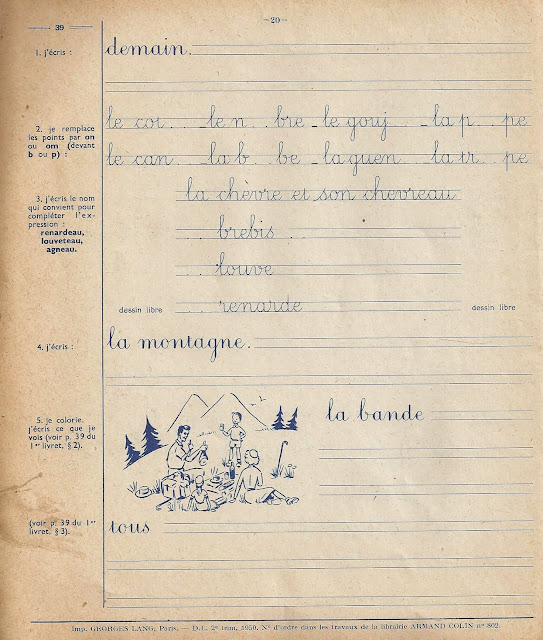 —20—
39
1. j'écris :
demain.
2. je remplace
les points par on
ou om (devant
b ou p) :
le cor... _le n...bre _le gouj... _la p...pe
le can... _la b...be _la guen... _la tr...pe
3. j'écris le nom
qui convient pour
compléter l'ex-
pression :
renardeau,
louveteau,
agneau.
la chèvre et son chevreau
.. brebis ..
.. louve
dessin libre .. renarde dessin libre
4. j'écris :
la montagne.
5. je colorie.
j'écris ce que je
vois (voir p. 39 du
1er livret, § 2).
la bande
(voir p. 39 du 1er
livret, § 3).
tous
Imp. GEORGES LANG, Paris. — D.L. 2e trim. 1950. N° d'ordre dans les travaux de la librairie ARMAND COLIN n° 802.